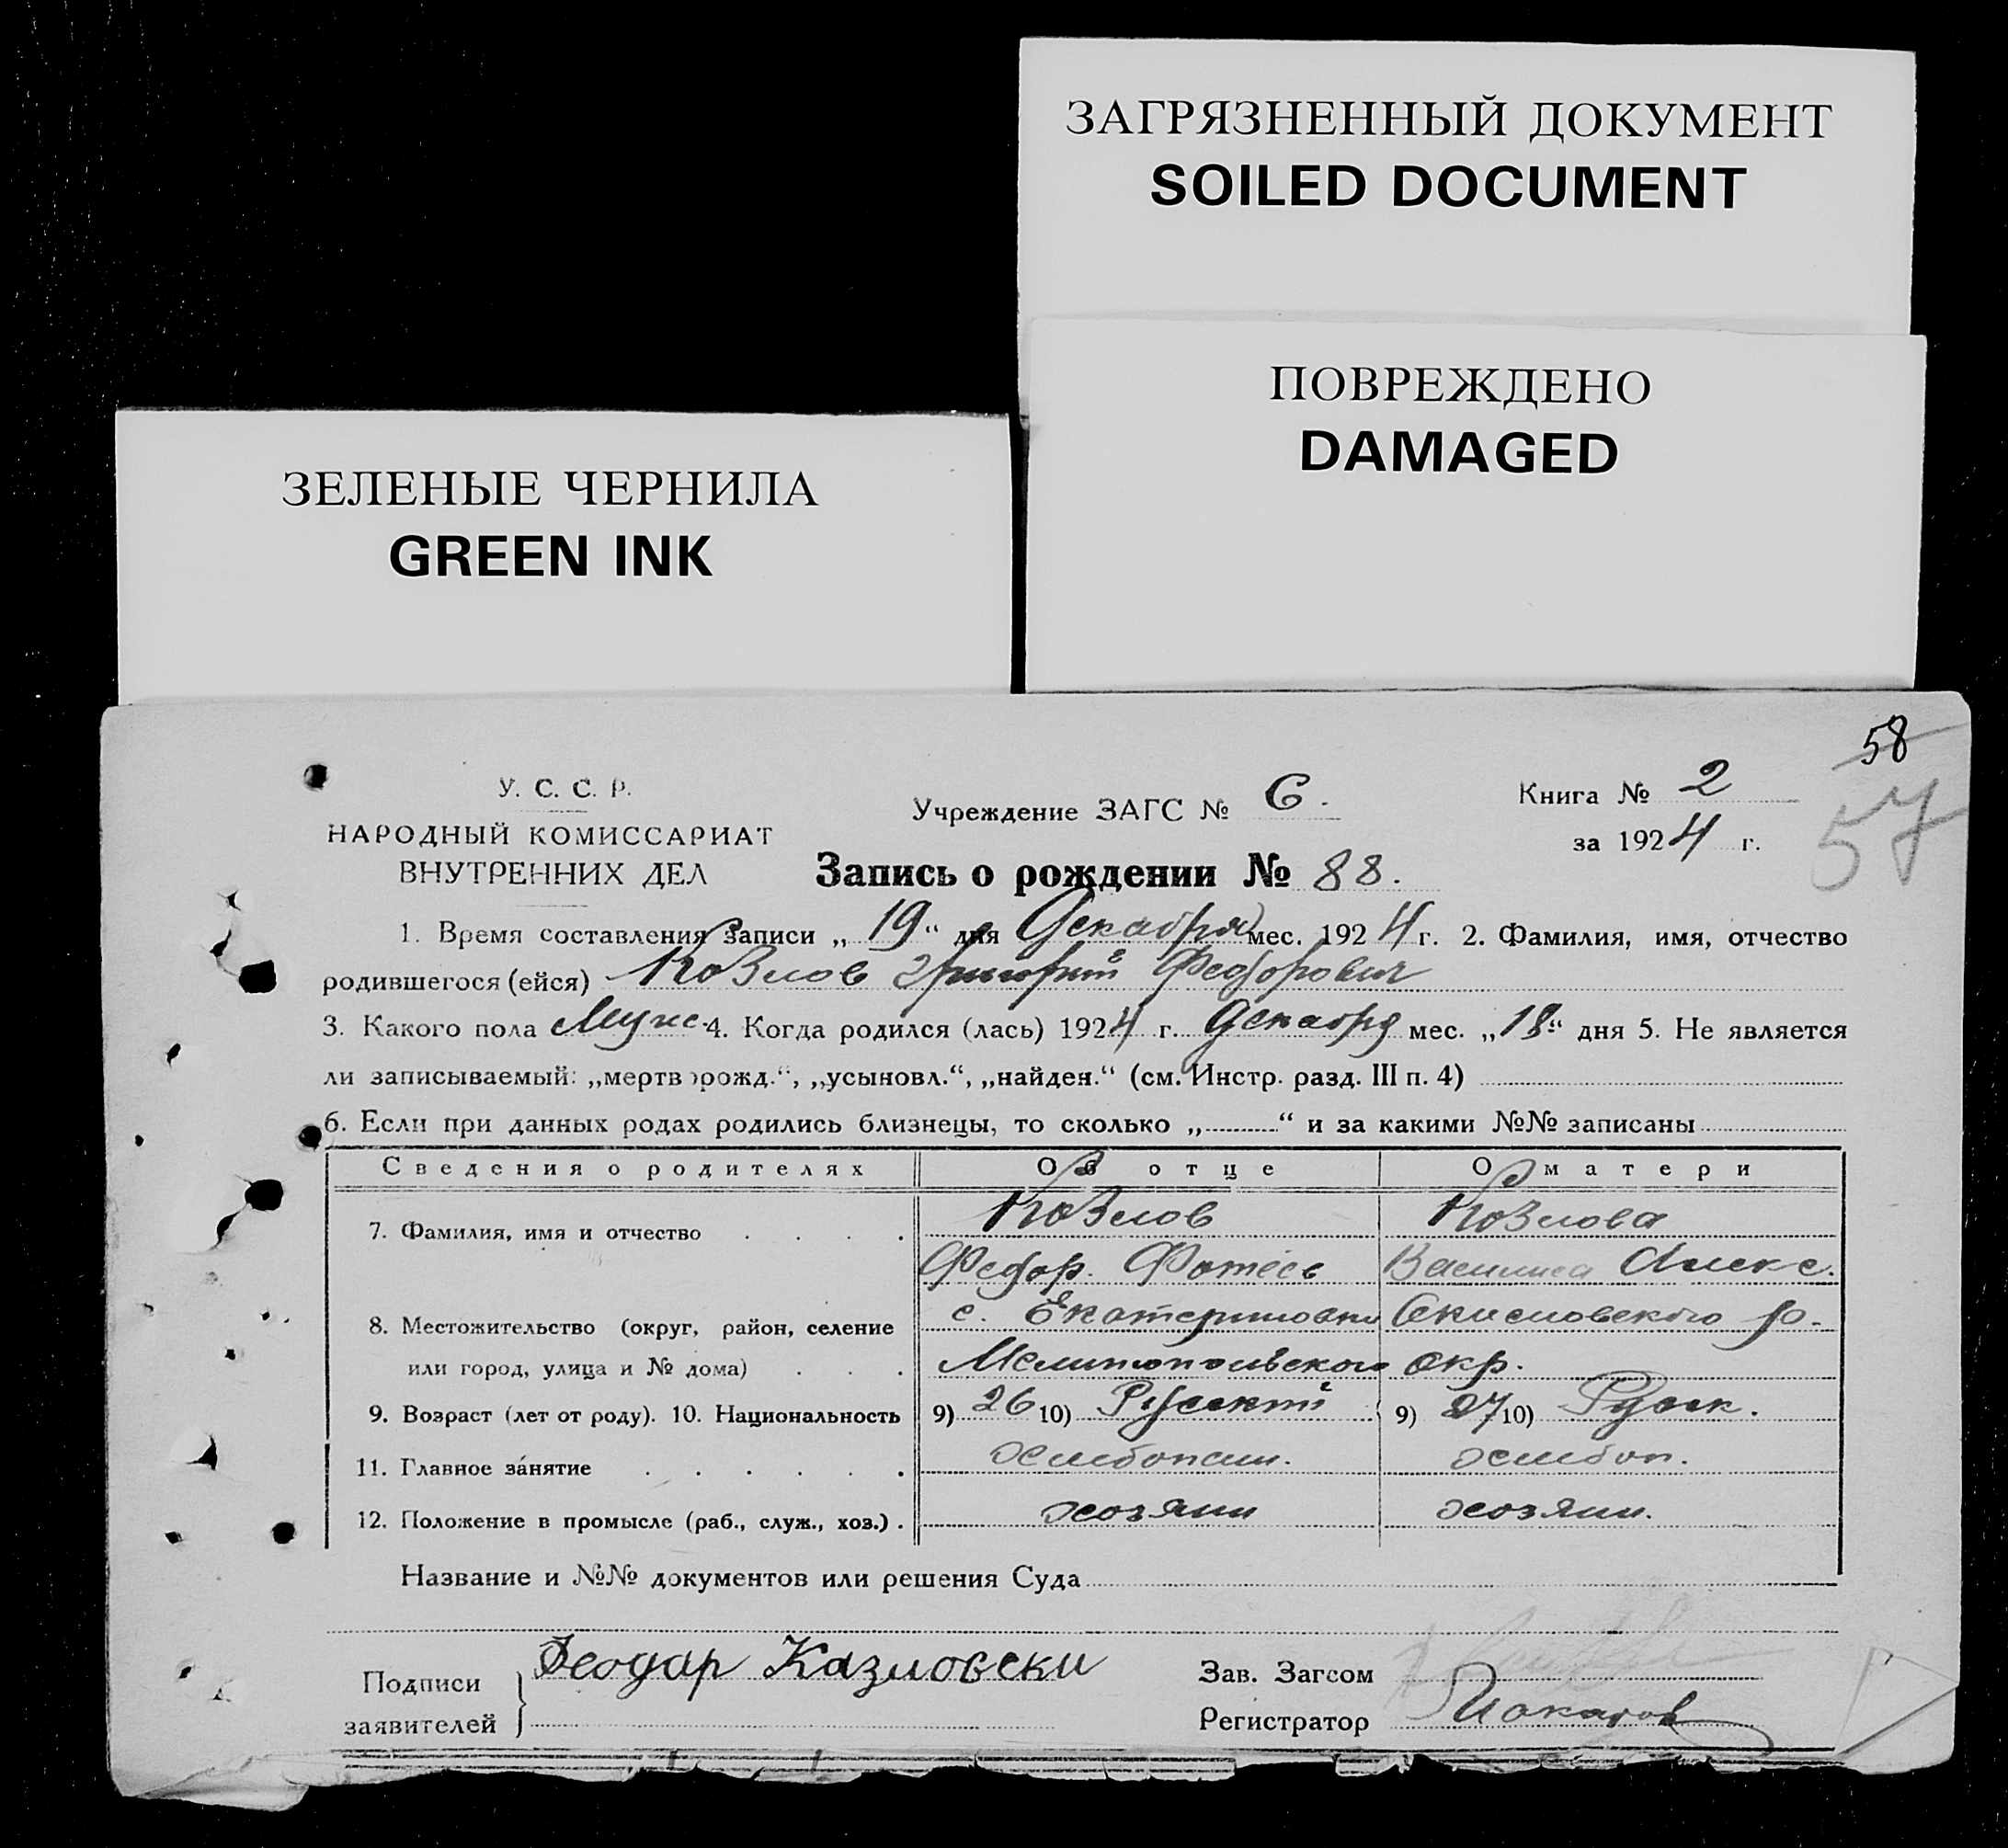 ЗАГРЯЗНЕННЫЙ ДОКУМЕНТ
SOILED DOCUMENT
ПОВРЕЖДЕНО
DAMAGED
ЗЕЛЕНЫЕ ЧЕРНИЛА
GREEN INK
58
57
У. С. С. Р.
НАРОДНЫЙ КОМИССАРИАТ
ВНУТРЕННИХ ДЕЛ
Учреждение ЗАГС № 6.
Книга № 2
за 1924 г.
Запись о рождении № 88.
1. Время составления записи „19“ дня Декабря мес. 1924 г. 2. Фамилия, имя, отчество
родившегося (ейся) Козлов Григорий Федорович
3. Какого пола Мужс. 4. Когда родился (лась) 1924 г. Декабря мес. „18“ дня 5. Не является
ли записываемый: „мертворожд.“, „усыновл.“, „найден.“ (см. Инстр. разд. III п. 4)
6. Если при данных родах родились близнецы, то сколько „ “ и за какими №№ записаны
Сведения о родителях Об отце О матери
7. Фамилия, имя и отчество Козлов Козлова
Федор. Фотеев Василиса Алекс.
8. Местожительство (округ, район, селение с. Екатериновки р.
или город, улица и № дома) Мелитопольского окр.
9. Возраст (лет от роду). 10. Национальность 9) 26 10) Русский 9) 27 10) Русск.
11. Главное занятие хлебопаш. хлебоп.
12. Положение в промысле (раб., служ., хоз.). хозяин хозяин.
Название и №№ документов или решения Суда
Подписи заявителей Феодар Казловски
Зав. Загсом
Регистратор